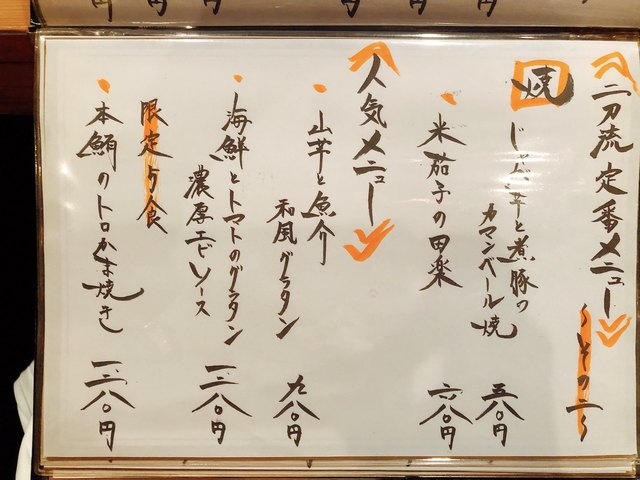 二刀流 定番メニュー
〜その二〜
焼
じゃが芋と煮豚の
カマンベール焼
五八〇円
米茄子の田楽
六八〇円
人気メニュー
山芋と魚介
和風グラタン
九八〇円
海鮮とトマトのグラタン
濃厚エビソース
一、二八〇円
限定5食
本鮪のトロかま焼き
一、二八〇円